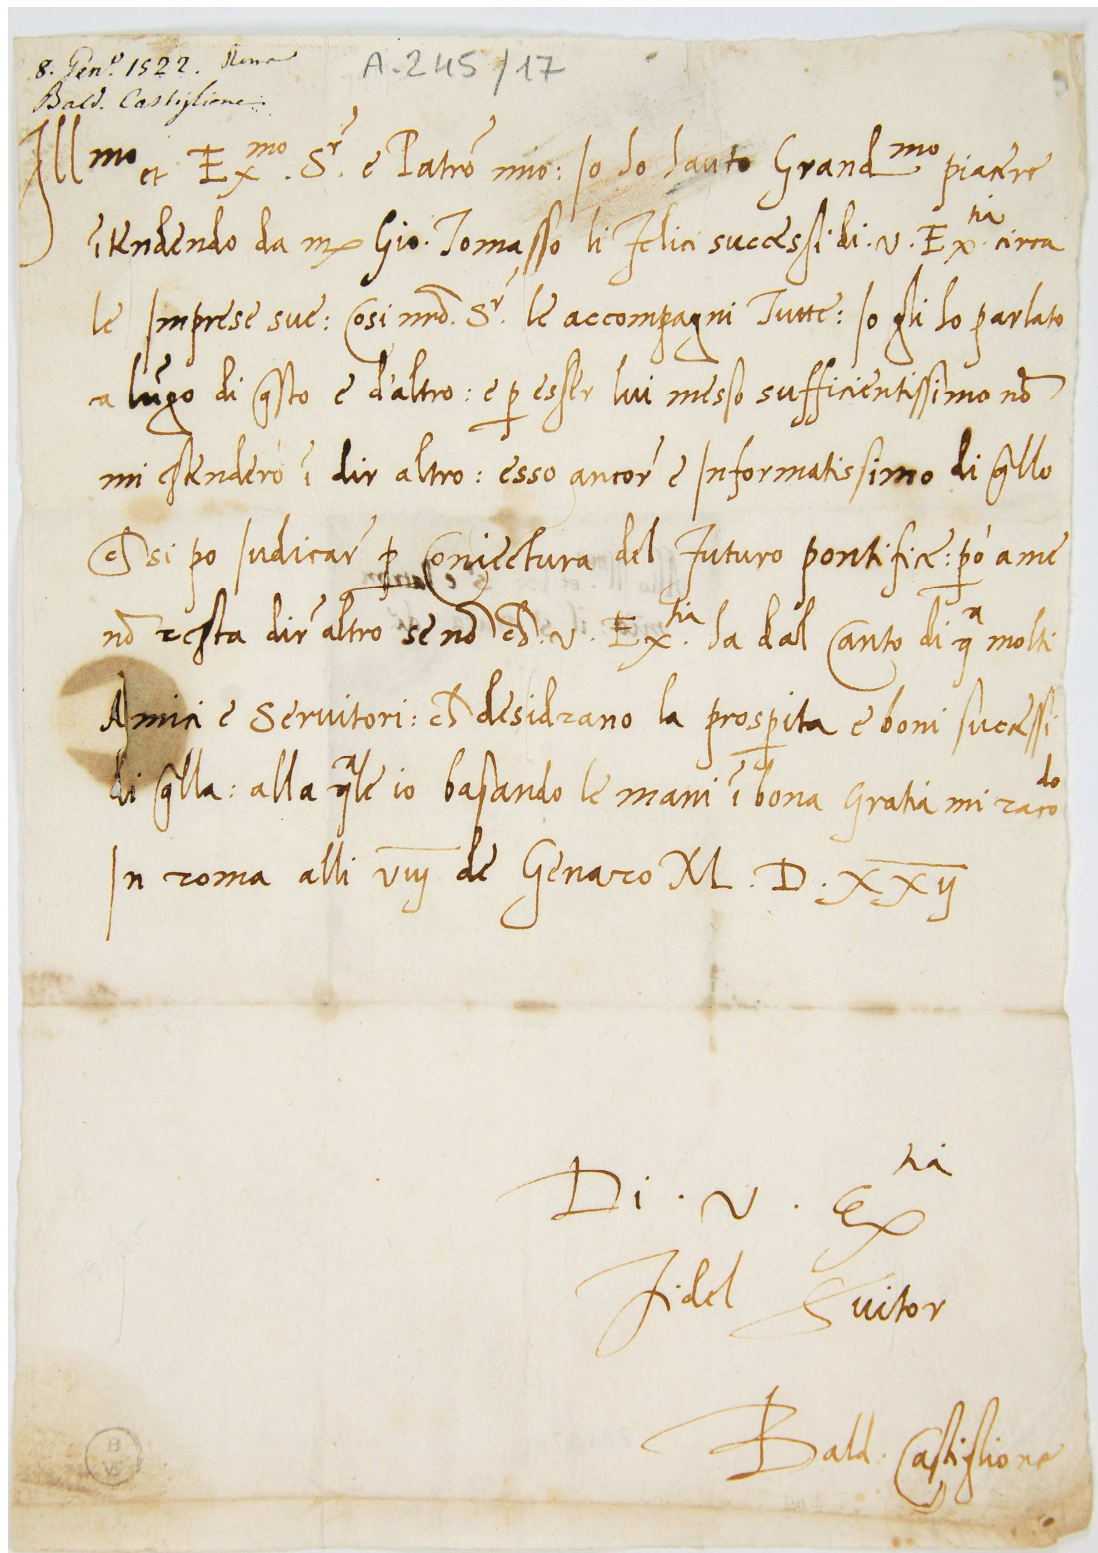 8. Gen.º 1522. Roma
A-245/17
Bald. Castiglione
Ill^mo et Ex^mo. S^r. e Patrõ mio: Io ho hauto Grand^mo piacere
ĩtendendo da m Gio. Tomasso li felici successi di .v. Ex^tia. circa
le Imprese sue: Cosi nrõ. S^r. le accompagni Tutte: Io gli ho parlato
a lũgo di q̃sto e d'altro: e ꝑ esser lui messo sufficientissimo nõ
mi estenderò ĩ dir altro: esso ancor̃ e Informatissimo di q̃llo
ch̃ si po Iudicar̃ ꝑ Coniectura del futuro pontifice: ꝑò a me
nõ resta dir̃ altro se nõ ch̃ .v. Ex^tia. ha dal Canto di q^a molti
Amici e Servitori: ch̃ desidrano la prosꝑita e boni sucessi
di q̃lla: alla q^ale io basando le mani ĩ bona Gratia mi racõ^do
In roma alli viij de Genaro M. D. XXij
Di . v . Ex^tia
fidel Suitor
Bald. Castiglione